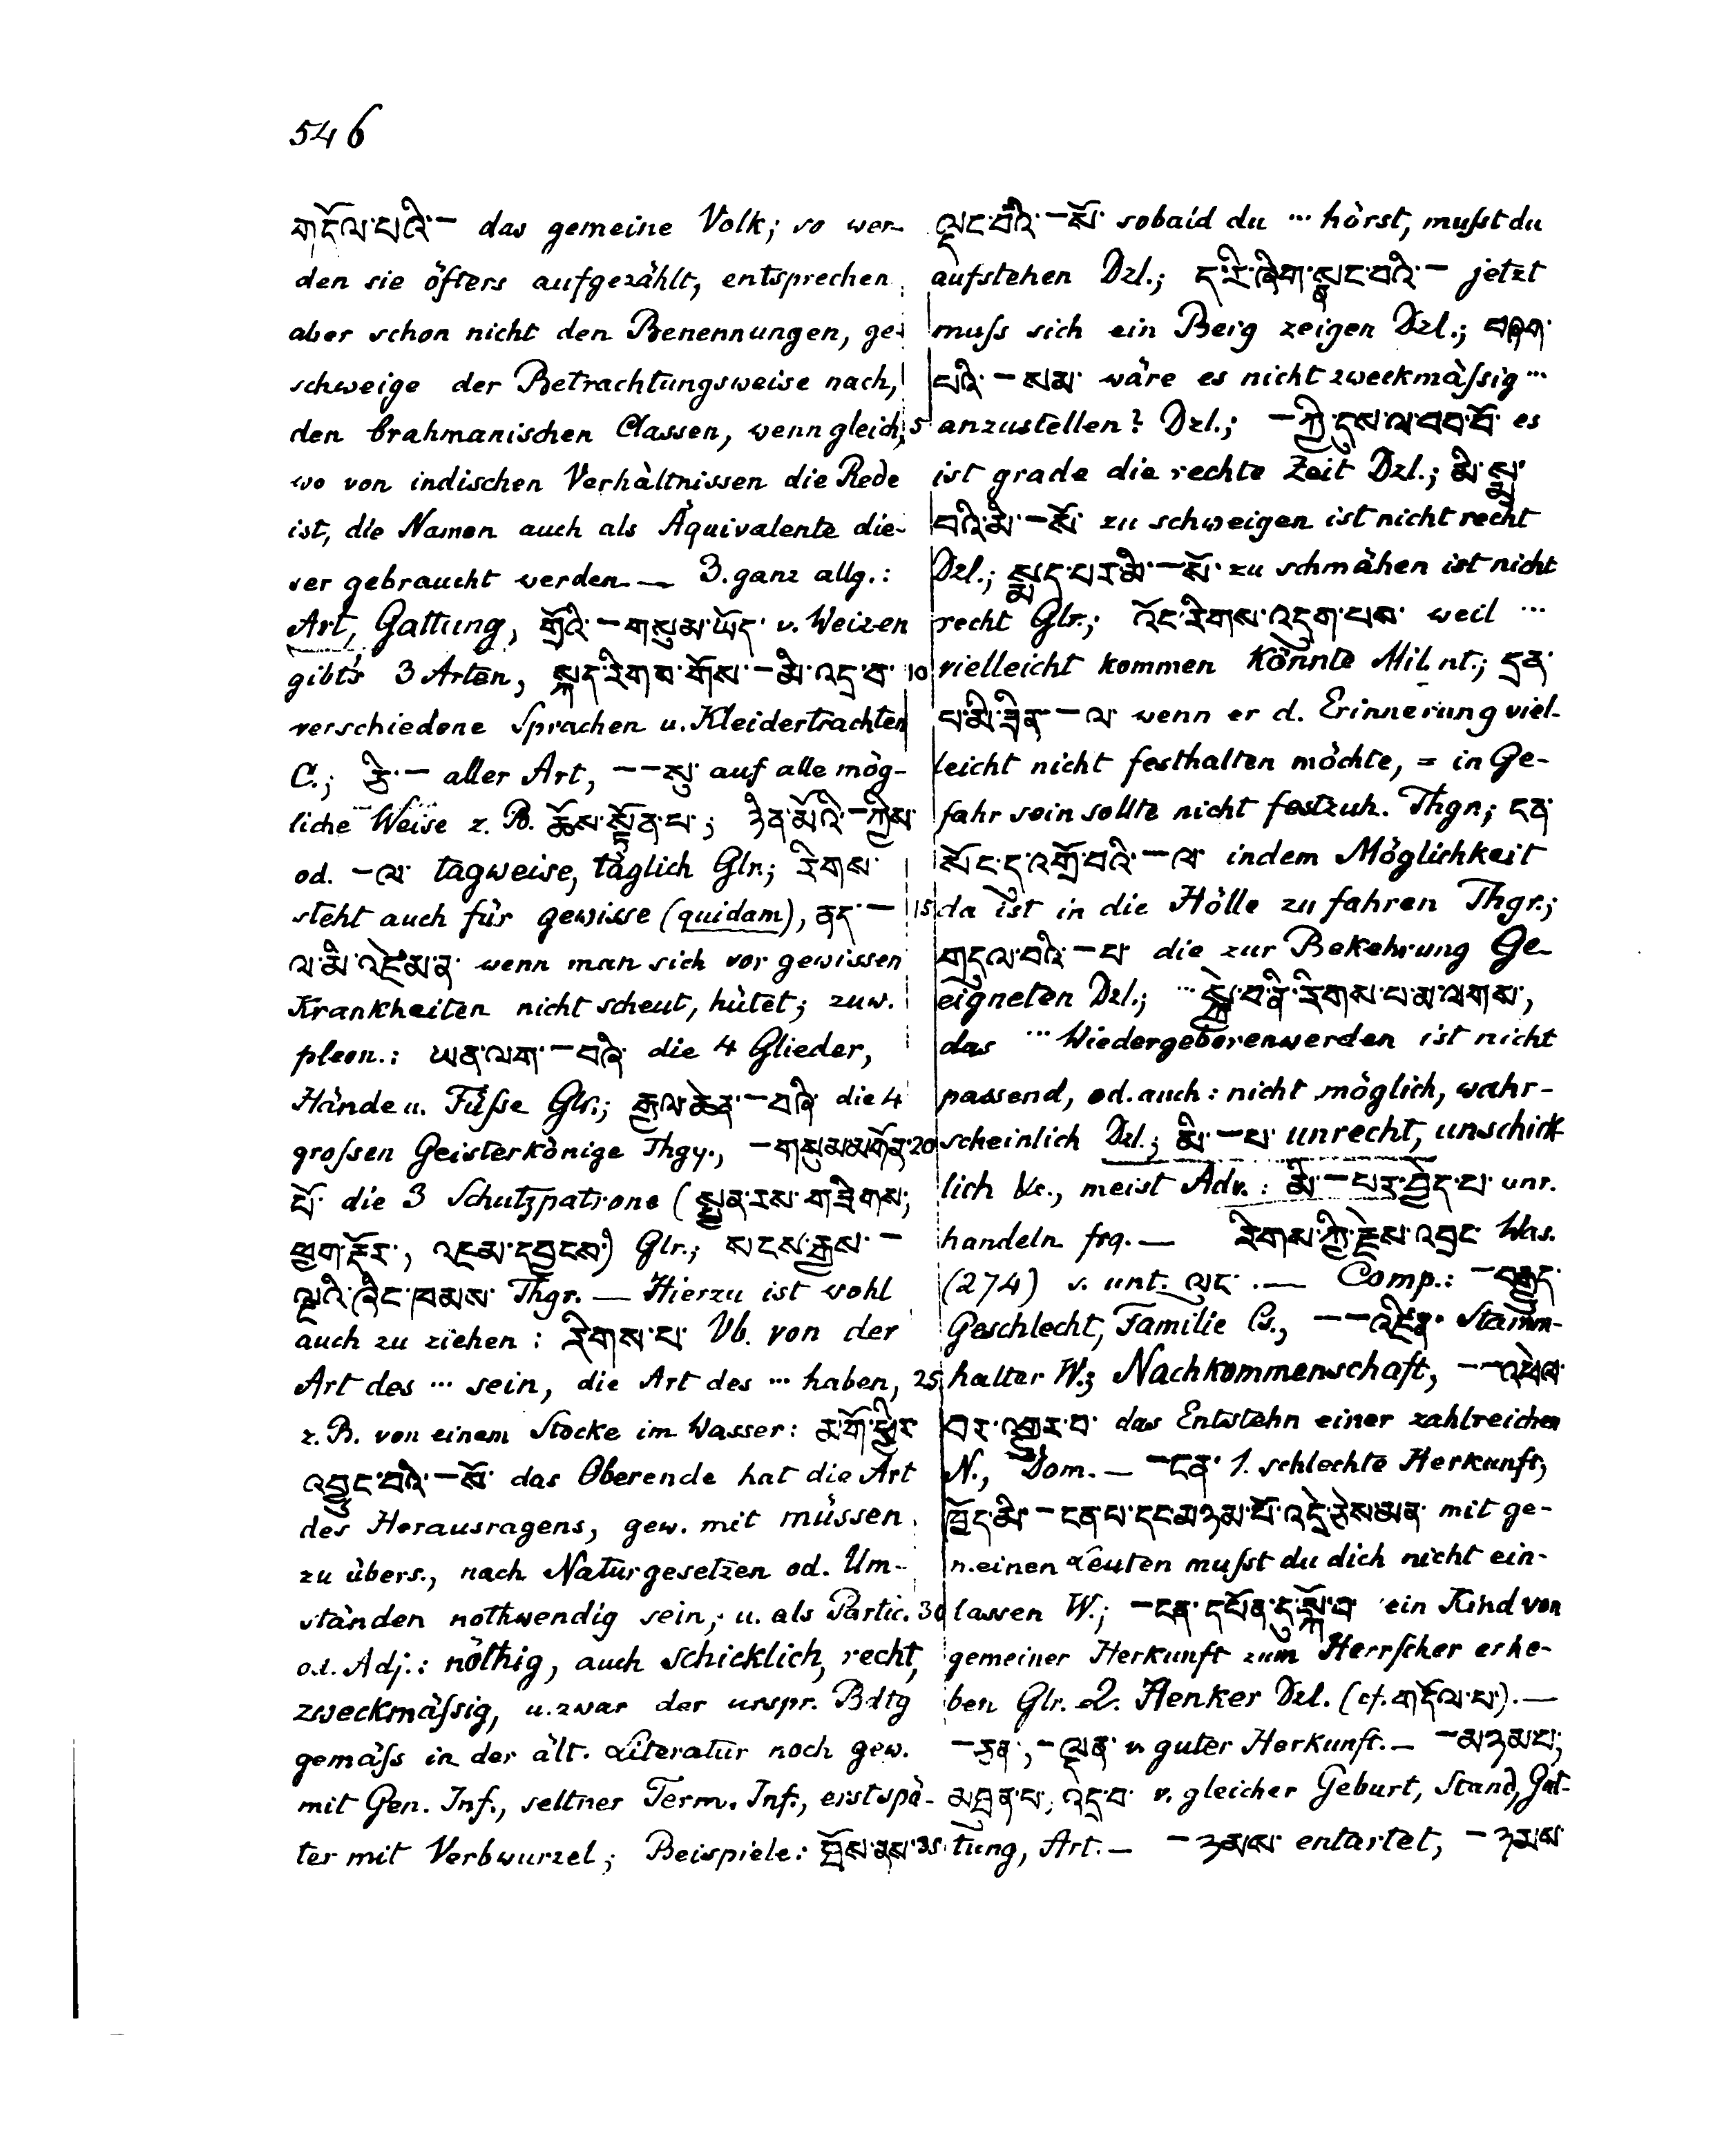 546
གདོལ་པའི་— das gemeine Volk; so wer-
den sie öfters aufgezählt, entsprechen
aber schon nicht den Benennungen, ge-
schweige der Betrachtungsweise nach,
den brahmanischen Classen, wenn gleich, 5
wo von indischen Verhältnissen die Rede
ist, die Namen auch als Äquivalente die-
ser gebraucht werden — 3. ganz allg.:
Art, Gattung, གྲོའི་—གསུམ་ཡོད་ v. Weizen
gibt's 3 Arten, སྐད་རིགས་གོས་—མི་འདྲ་བ་ 10
verschiedene Sprachen u. Kleidertrachten
C.; ཅི་— aller Art, ——སུ་ auf alle mög-
liche Weise z. B. ཆོས་སྟོན་པ་; ཉིན་མོའི་—ཀྱིས་
od. —ལ་ tagweise, täglich Glr.; རིགས་
steht auch für gewisse (quidam), ནད་— 15
ལ་མི་འཛེམ་ན་ wenn man sich vor gewissen
Krankheiten nicht scheut, hütet; zuw.
pleon.: ཡན་ལག་—བཞི་ die 4 Glieder,
Hände u. Füsse Glr.; རྒྱལ་ཆེན་—བཞི་ die 4
grossen Geisterkönige Thgy., —གསུམ་མགོན་ 20
པོ་ die 3 Schutzpatrone (སྤྱན་རས་གཟིགས,
ཕྱག་རྡོར་, འཇམ་དབྱངས་) Glr.; སངས་རྒྱས་—
ལྔའི་ཞིང་ཁམས་ Thgr. — Hierzu ist wohl
auch zu ziehen: རིགས་པ་ Vb. von der
Art des ··· sein, die Art des ··· haben, 25
z. B. von einem Stocke im Wasser: རྩ་གོ་ཕྱིར་
འབྱུང་བའི་—སོ་ das Oberende hat die Art
des Herausragens, gew. mit müssen
zu übers., nach Naturgesetzen od. Um-
ständen nothwendig sein, u. als Partic. 30
od. Adj.: nöthig, auch schicklich, recht,
zweckmässig, u. zwar der urspr. Bdtg
gemäss in der ält. Literatur noch gew.
mit Gen. Inf., seltner Term. Inf., erst spä-
ter mit Verbwurzel; Beispiele: ཐོས་ནས་ 35
ལྡང་བའི་—སོ་ sobald du ··· hörst, musst du
aufstehen Dzl.; ད་རི་ཞིག་སྣང་བའི་— jetzt
muss sich ein Berg zeigen Dzl.; བཞག་
པའི་—སམ་ wäre es nicht zweckmässig ···
anzustellen? Dzl.; —ཀྱི་དུས་ལ་བབ་བོ་ es
ist grade die rechte Zeit Dzl.; མི་སྨྲ་
བའི་མི་—སོ་ zu schweigen ist nicht recht
Dzl.; སྨད་པར་མི་—སོ་ zu schmähen ist nicht
recht Glr.; འོང་རིགས་འདུག་པས་ weil ···
vielleicht kommen könnte Mil. nt.; དྲན་
པ་མི་ཟིན་—ལ་ wenn er d. Erinnerung viel-
leicht nicht festhalten möchte, = in Ge-
fahr sein sollte nicht festzuh. Thgn; ངན་
སོང་དུ་འགྲོ་བའི་—ལ་ indem Möglichkeit
da ist in die Hölle zu fahren Thgr.;
གདུལ་བའི་—པ་ die zur Bekehrung Ge-
eigneten Dzl.; ···སྐྱེ་བ་ནི་རིགས་པ་མ་ལགས་,
das ··· Wiedergeborenwerden ist nicht
passend, od. auch: nicht möglich, wahr-
scheinlich Dzl.; མི་—པ་ unrecht, unschick-
lich &c., meist Adv.: མི་—པར་བྱེད་པ་ unr.
handeln frq. — རིགས་ཀྱི་རྗེས་འབྲང་ Was.
(274) s. unt. ལུང་. — Comp.: —བརྒྱུད་
Geschlecht, Familie Cs., ——འཛིན་ Stamm-
halter W.; Nachkommenschaft, ——འཕེལ་
བར་འགྱུར་བ་ das Entstehn einer zahlreichen
N., Dom. — —ངན་ 1. schlechte Herkunft,
ཁྱོད་མི་—ངན་པ་དང་མཉམ་པོ་འདྲེ་ཉེས་མན་ mit ge-
meinen Leuten musst du dich nicht ein-
lassen W.; —ངན་དཔོན་དུ་སྐོ་བ་ ein Kind von
gemeiner Herkunft zum Herrscher erhe-
ben Glr. 2. Henker Dzl. (cf. གདོལ་པ་). —
—ཅན་, —ལྡན་ v. guter Herkunft. — —མཉམ་པ་,
མཐུན་པ་, འདྲ་བ་ v. gleicher Geburt, Stand, Gat-
tung, Art. — —ཉམས་ entartet, —ཉམས་